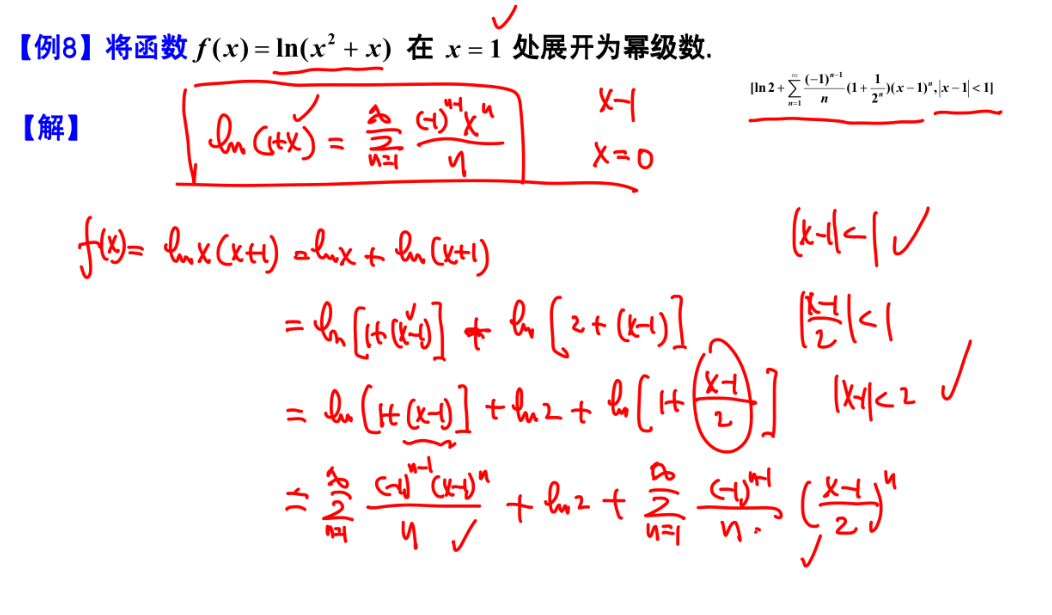 【例8】将函数 f(x) = ln(x² + x) 在 x = 1 处展开为幂级数.
[ln 2 + ∑_{n=1}^{∞} (-1)^{n-1}/n (1 + 1/2ⁿ)(x − 1)ⁿ, |x − 1| < 1]
【解】
ln(1+x) = ∑_{n=1}^{∞} (-1)^{n-1} xⁿ / n
x-1
x=0
f(x) = ln x(x+1) = ln x + ln(x+1)
|x-1| < 1
= ln[1+(x-1)] + ln[2+(x-1)]
|(x-1)/2| < 1
= ln[1+(x-1)] + ln2 + ln[1+ (x-1)/2]
|x-1| < 2
= ∑_{n=1}^{∞} (-1)^{n-1} (x-1)ⁿ / n + ln2 + ∑_{n=1}^{∞} (-1)^{n-1} / n · ((x-1)/2)ⁿ